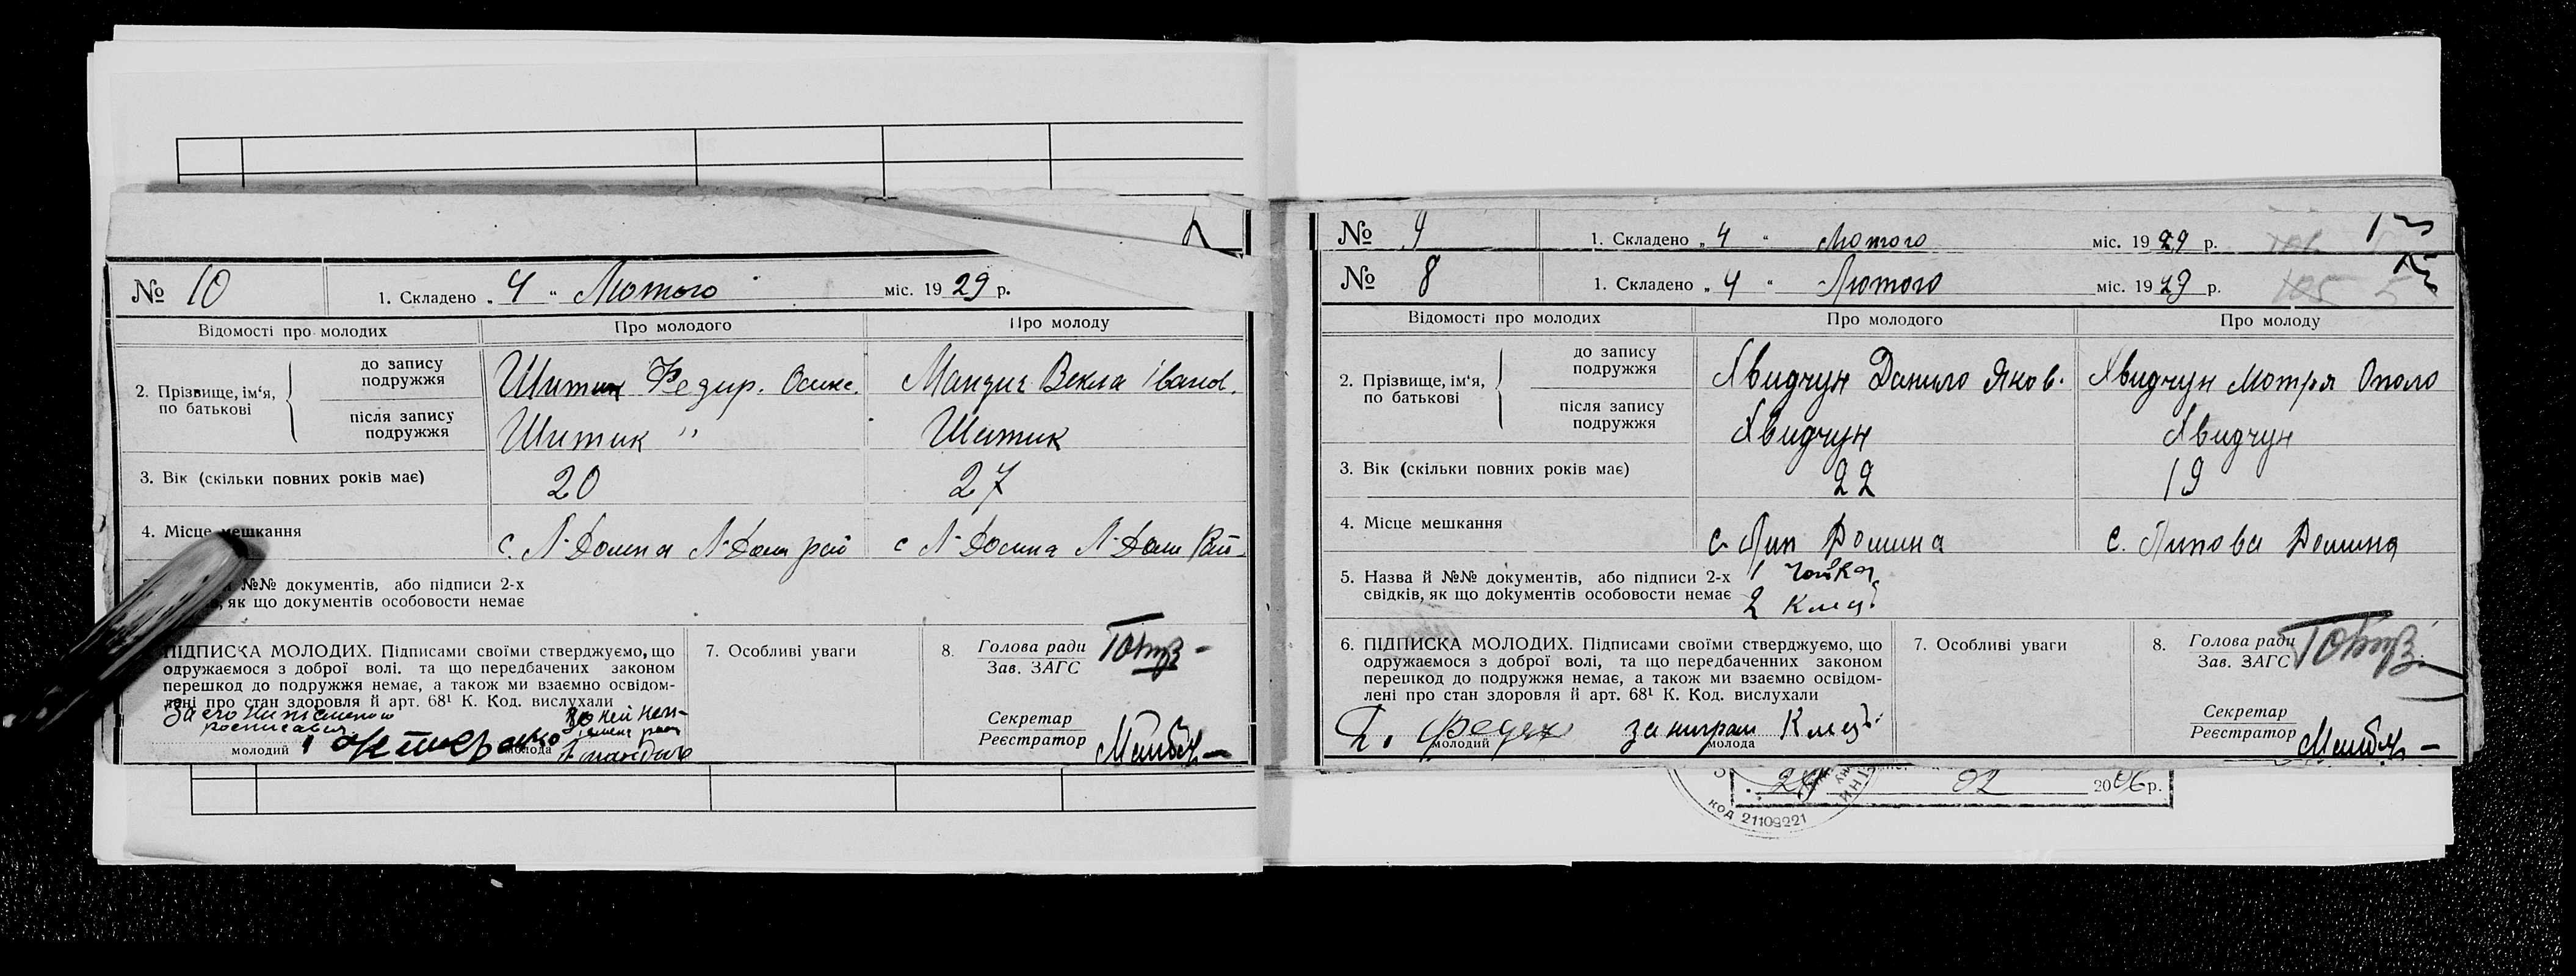 № 10
1. Складено „ 4 “ Лютого міс. 19 29 р.
Відомості про молодих
Про молодого
Про молоду
2. Прізвище, ім‘я, по батькові
до запису подружжя
Федир. Осипо.
Векла Іванов.
після запису подружжя
Шитик "
Шитик
3. Вік (скільки повних років має)
20
27
4. Місце мешкання
с. Л-Долина Л-Доли рай
с Л-Долина Л-Доли Рай
№№ документів, або підписи 2-х
як що документів особовости немає
ПІДПИСКА МОЛОДИХ. Підписами своїми стверджуємо, що
одружаємося з доброї волі. та що передбачених законом
перешкод до подружжя немає, а також ми взаємно освідом-
лені про стан здоровля й арт. 68¹ К. Код. вислухали
За його
молодий
молода
7. Особливі уваги
8. Голова ради
Зав. ЗАГС
Секретар
Реєстратор
№ 9
1. Складено „ 4 “ Лютого міс. 19 29 р.
№ 8
1. Складено „ 4 “ Лютого міс. 19 29 р.
105 5
Відомості про молодих
Про молодого
Про молоду
2. Прізвище, ім‘я, по батькові
до запису подружжя
Явидчун Данило Янов.
Явидчун Мотря
після запису подружжя
Явидчун
Явидчун
3. Вік (скільки повних років має)
22
19
4. Місце мешкання
с. Лип Долина
с. Липова Долина
5. Назва й №№ документів, або підписи 2-х
свідків, як що документів особовости немає
1
2
6. ПІДПИСКА МОЛОДИХ. Підписами своїми стверджуємо, що
одружаємося з доброї волі, та що передбаченних законом
перешкод до подружжя немає, а також ми взаємно освідом-
лені про стан здоровля й арт. 68¹ К. Код. вислухали
молодий
молода
7. Особливі уваги
8. Голова ради
Зав. ЗАГС
Секретар
Реєстратор
02 2006 р.
КОД 21109221